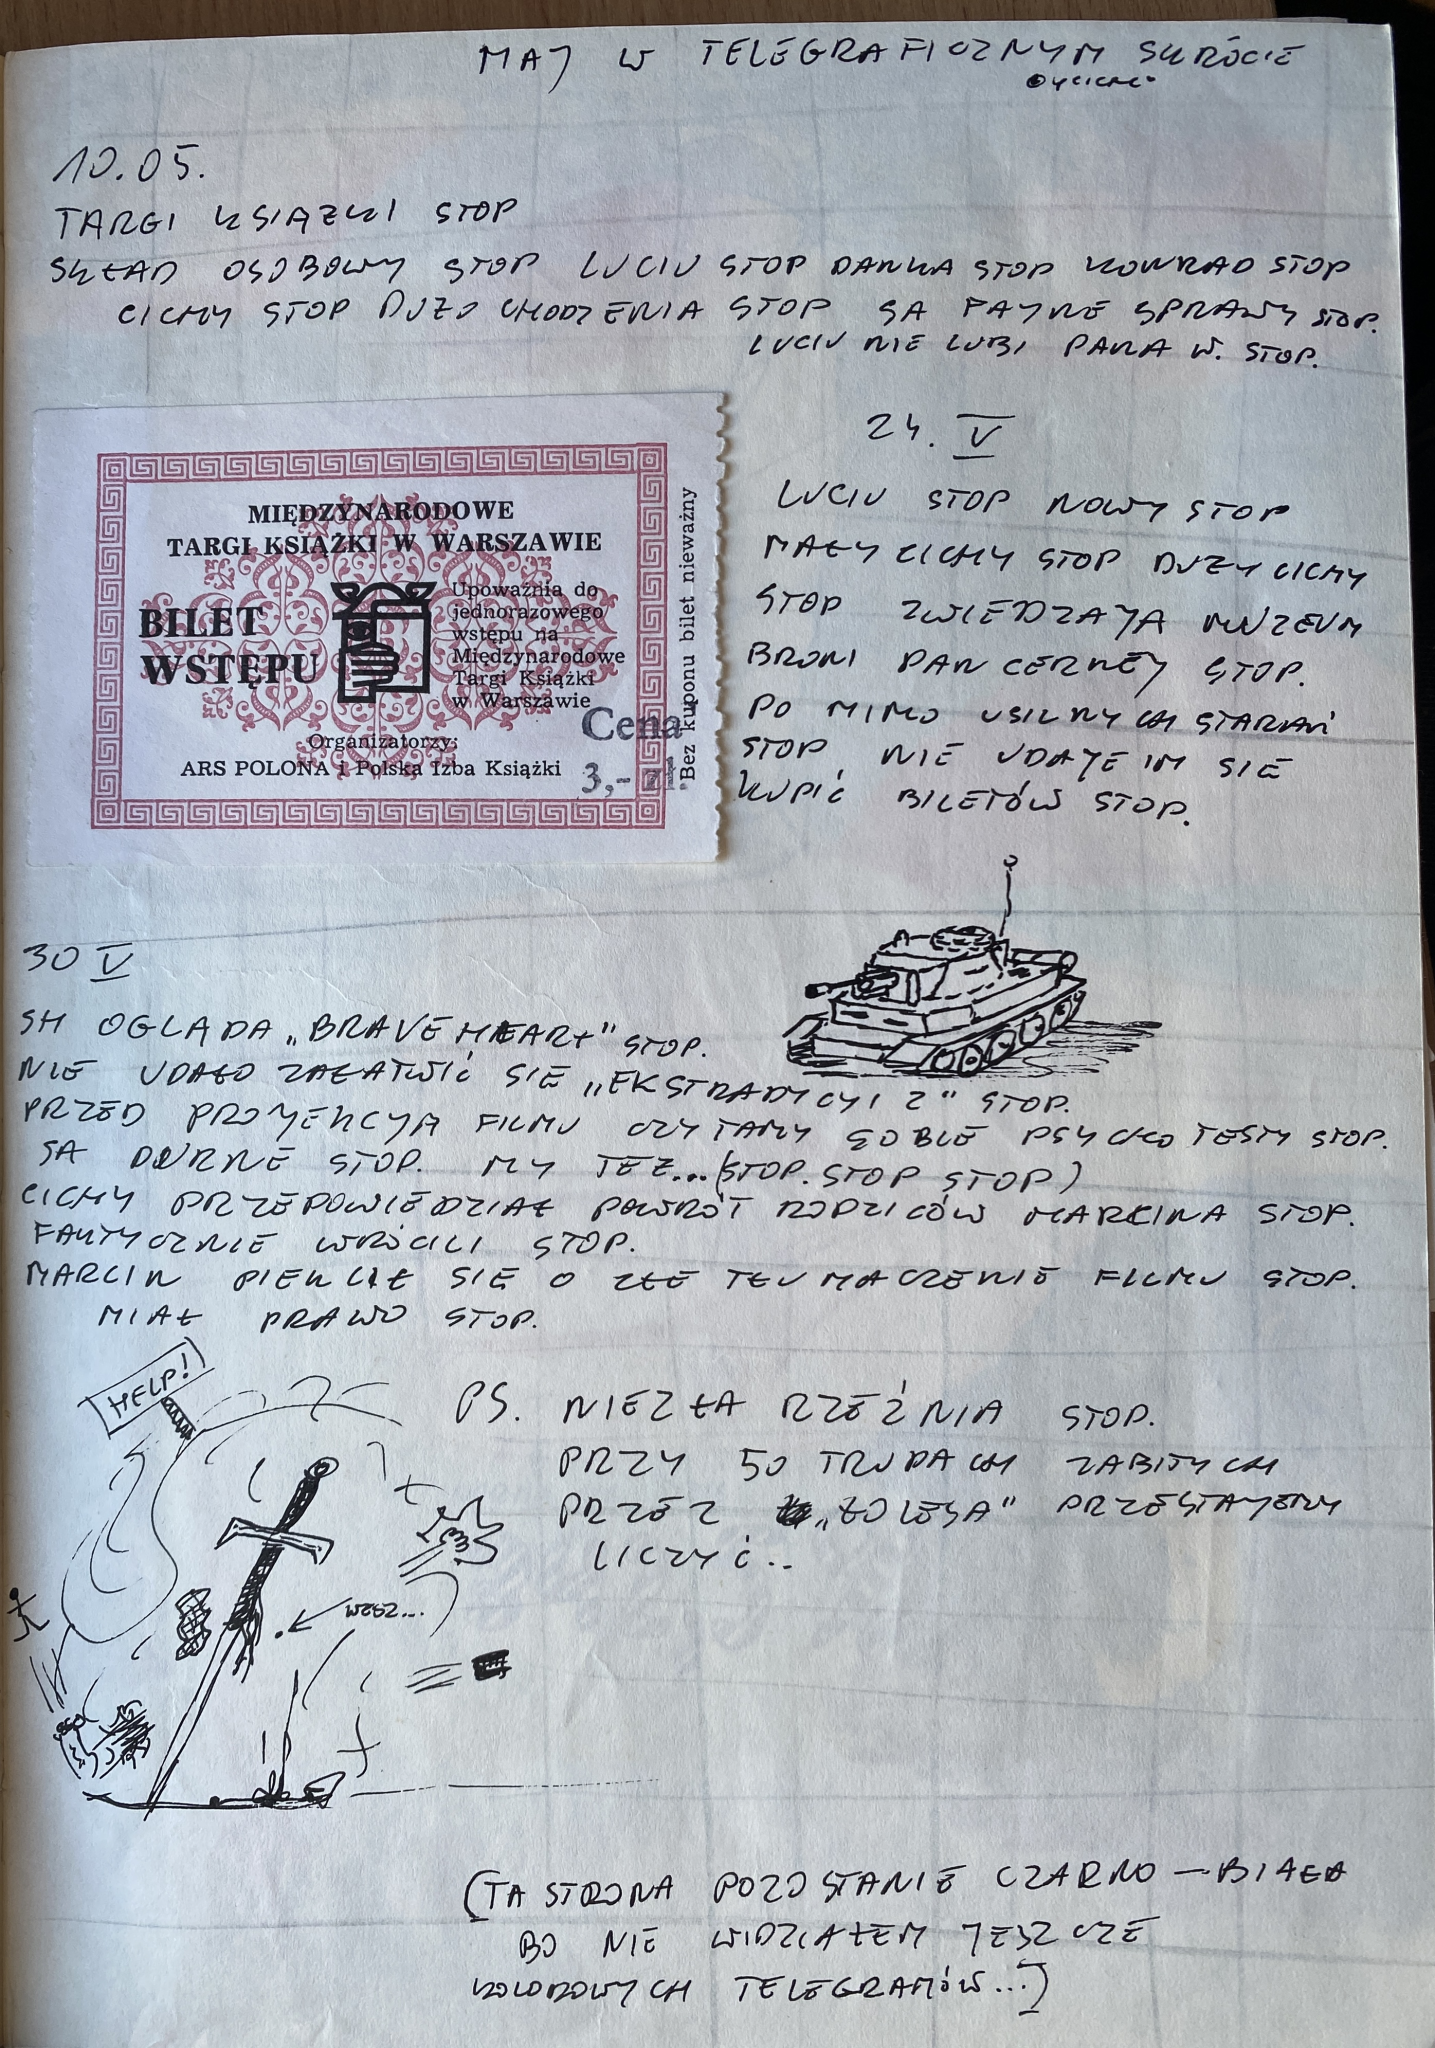 MAJ W TELEGRAFICZNYM SKRÓCIE
10.05.
TARGI KSIĄZKI STOP
SKŁAD OSOBOWY STOP LUCIU STOP DANKA STOP KONRAD STOP
CICHY STOP DUZO CHODZENIA STOP SĄ FAJNE SPRAWY STOP.
LUCIU NIE LUBI PANA W. STOP.
MIĘDZYNARODOWE
TARGI KSIĄŻKI W WARSZAWIE
BILET
WSTĘPU
Upoważnia do
jednorazowego
wstępu na
Międzynarodowe
Targi Książki
w Warszawie
Cena
3,- zł.
Organizatorzy:
ARS POLONA i Polska Izba Książki
Bez kuponu bilet nieważny
24. V
LUCIU STOP NOWY STOP
MAŁY CICHY STOP DUZY CICHY
STOP ZWIEDZAJĄ MUZEUM
BRONI PANCERNEJ STOP.
PO MIMO USILNYCH STARAŃ
STOP NIE UDAJE IM SIE
KUPIĆ BILETÓW STOP.
30 V
SH OGLĄDA „BRAVE HEART" STOP.
NIE UDAŁO ZAŁATWIĆ SIE „EKSTRADYCJI 2" STOP.
PRZED PROJEKCJĄ FILMU CZYTAMY SOBIE PSYCHO TESTY STOP.
SĄ DURNE STOP. MY TEZ... (STOP. STOP STOP)
CICHY PRZEPOWIEDZIAŁ POWRÓT RODZICÓW MARCINA STOP.
FAKTYCZNIE WRÓCILI STOP.
MARCIN PIEKLIŁ SIE O ZŁE TŁUMACZENIE FILMU STOP.
MIAŁ PRAWO STOP.
HELP!
PS. NIEZŁA RZEŹNIA STOP.
PRZY 50 TRUPACH ZABITYCH
PRZEZ „ŁOLESA" PRZESTAJEMY
LICZYĆ..
WESZ...
(TA STRONA POZOSTANIE CZARNO – BIAŁA
BO NIE WIDZIAŁEM JESZCZE
KOLOROWYCH TELEGRAMÓW...)